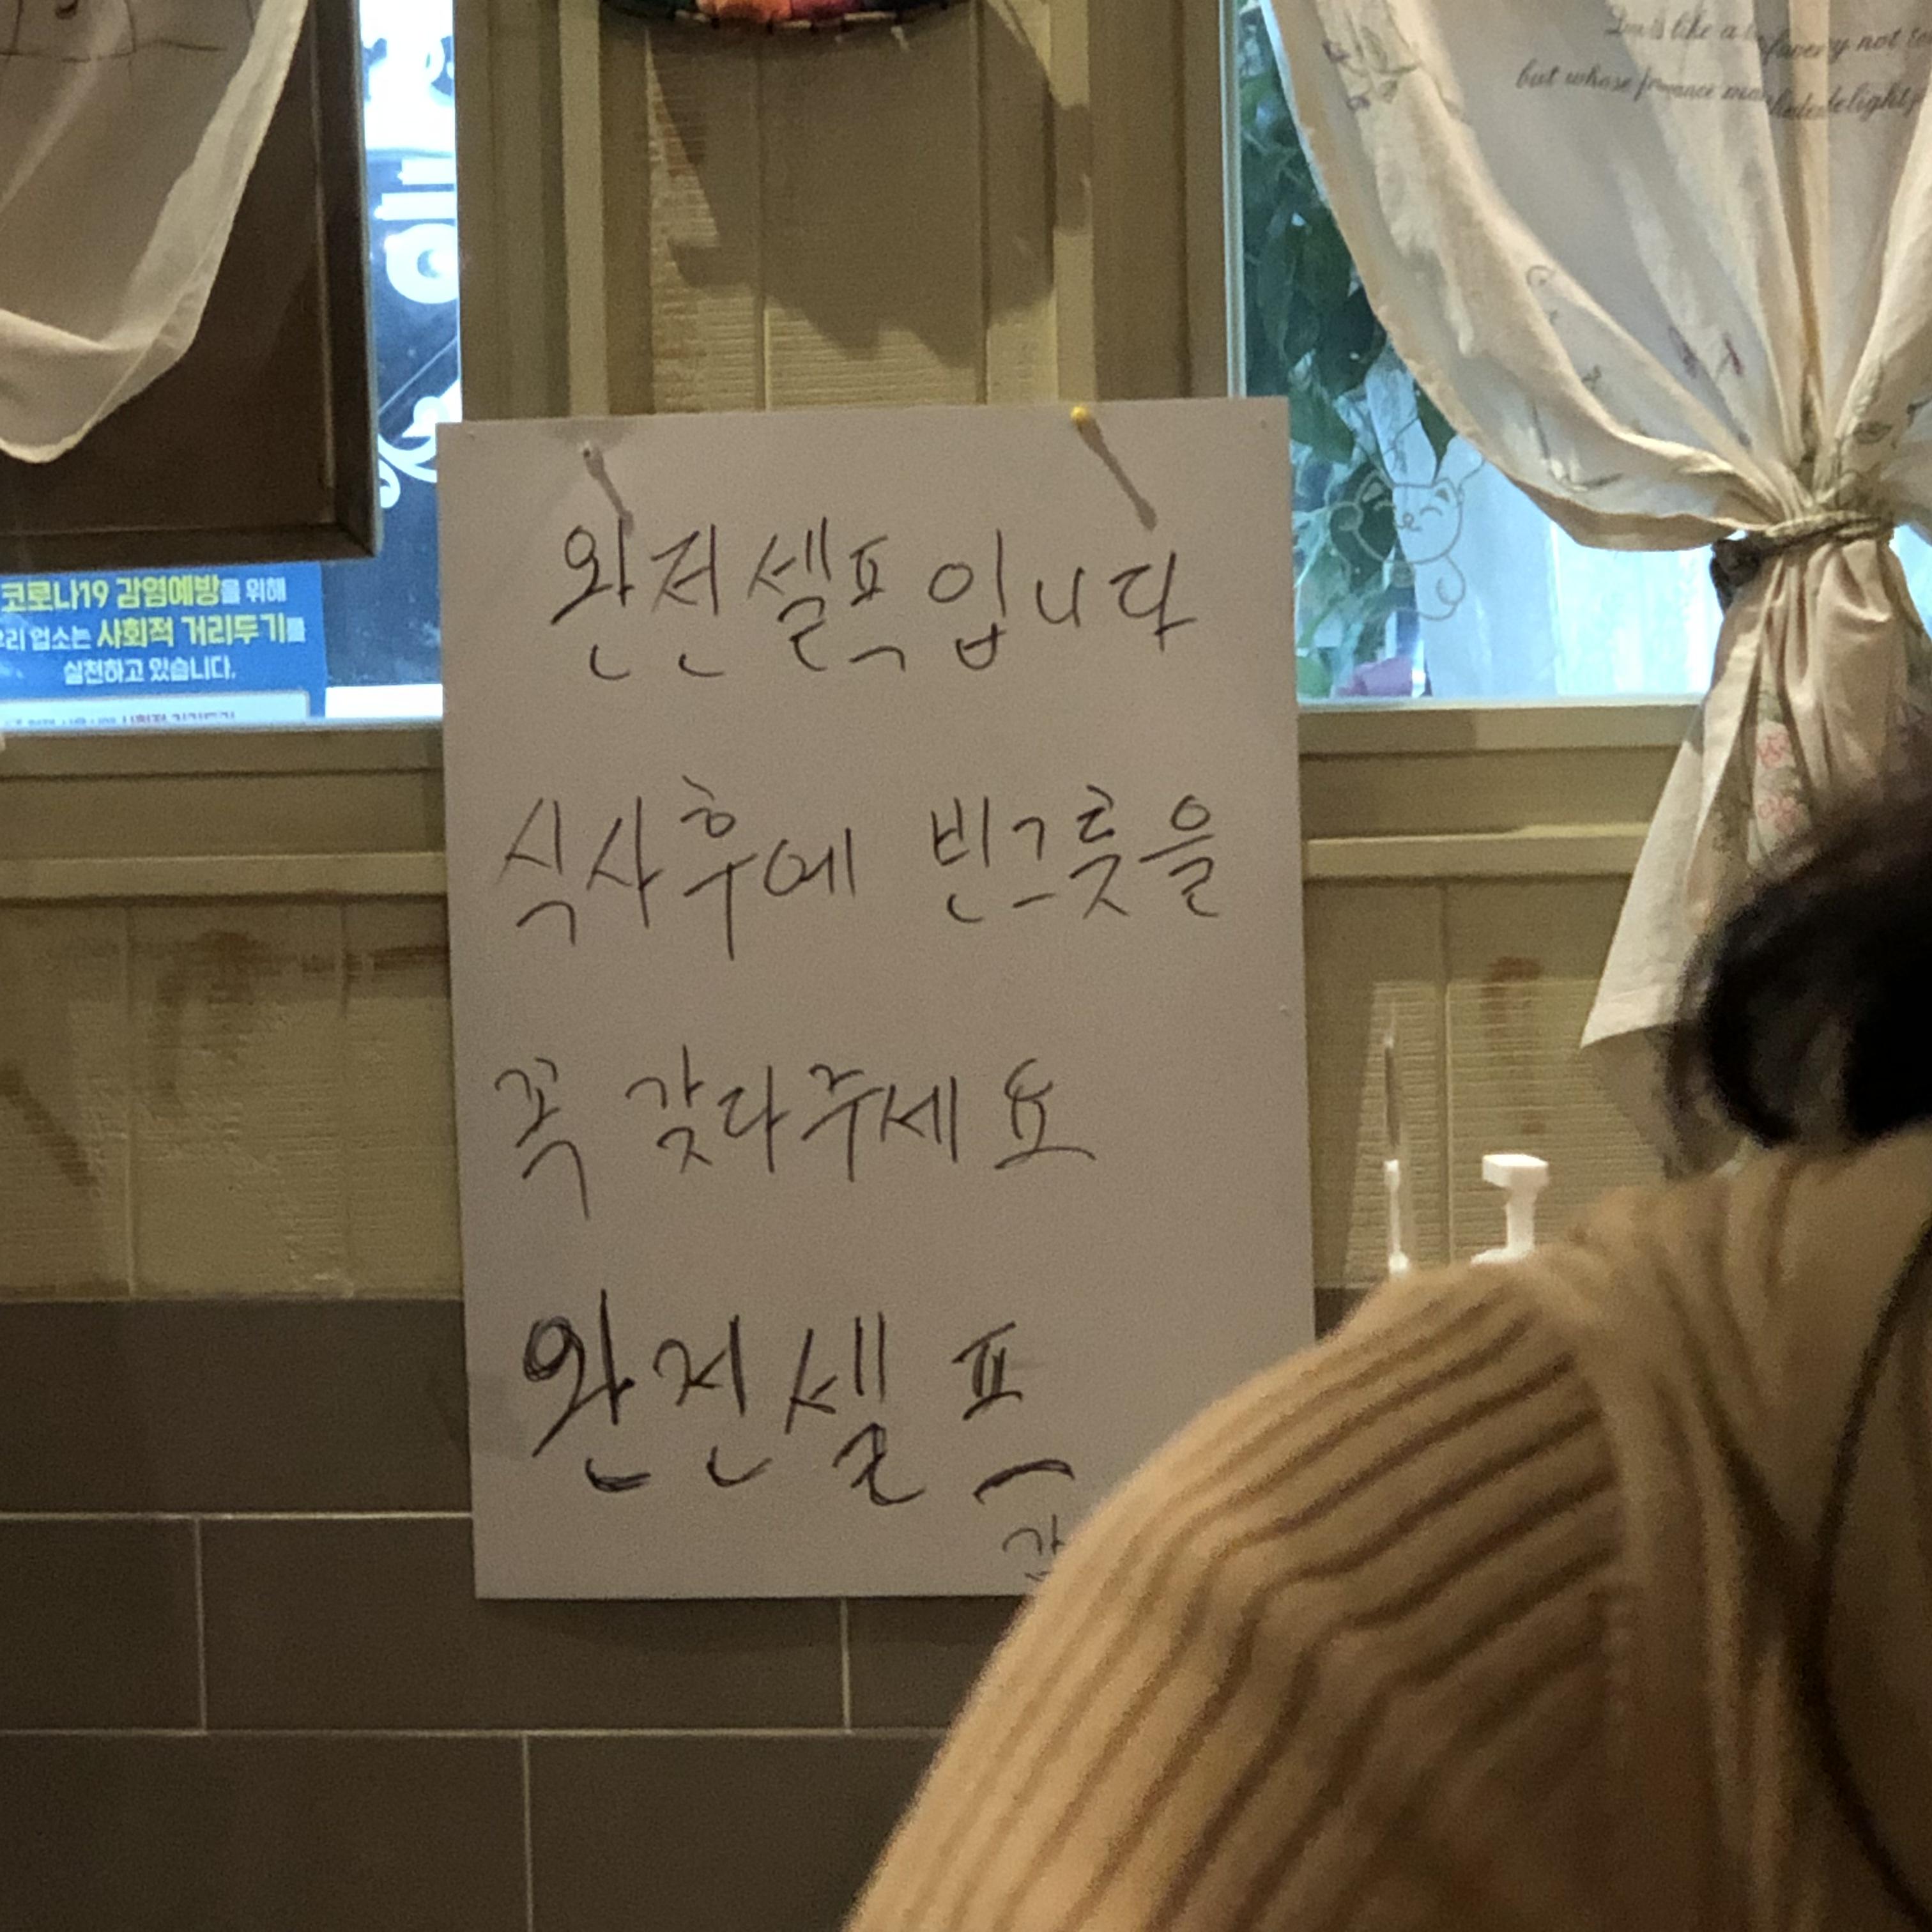 완전셀프입니다
식사후에 빈그릇을
꼭 갖다주세요
완전셀프
코로나19 감염예방을 위해
우리 업소는 사회적 거리두기를
실천하고 있습니다.
like a
not
but whose